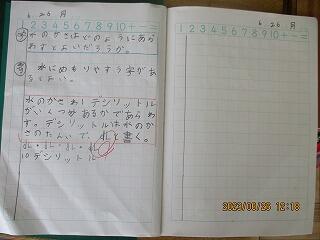 6 26 月
1 2 3 4 5 6 7 8 9 10 + − =
水のかさはどのようにあら
わすとよいだろうか。
水にめもりやす字があ
るとよい。
水のかさは1デシリットル
がいくつ分あるかであらわ
す。デシリットルは水のか
さのたんいで、dLと書く。
dL・dL・dL・dL
10デシリットル
6 26 月
1 2 3 4 5 6 7 8 9 10 + − =
2023/06/26 12:18